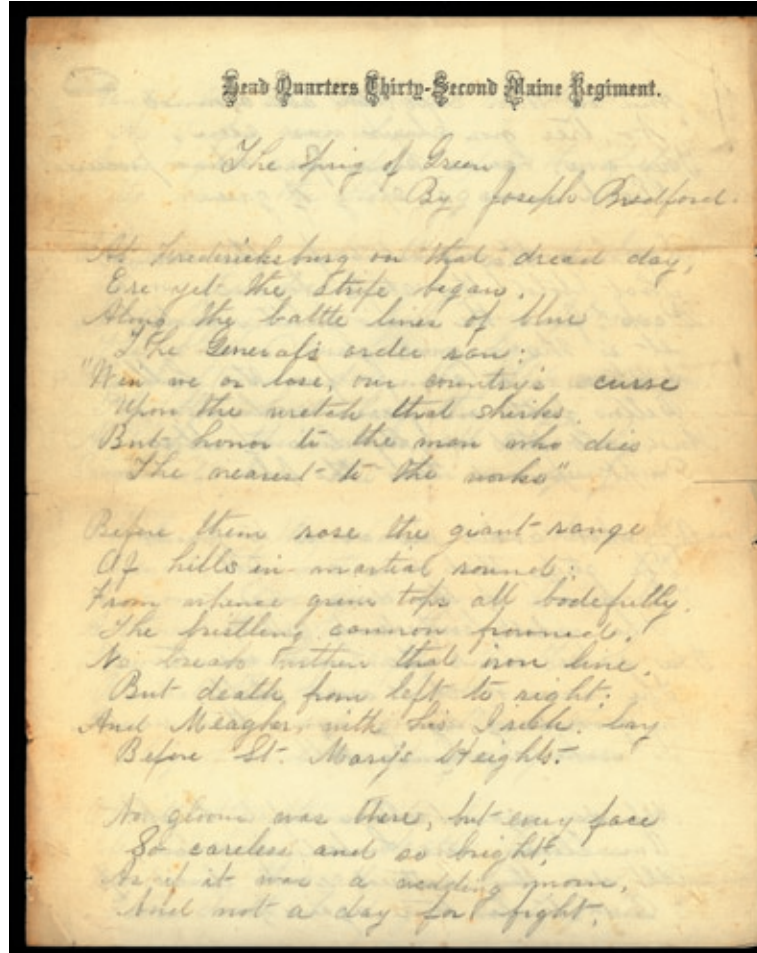 Head Quarters Thirty-Second Maine Regiment.
The Sprig of Green
By Joseph Bradford.
At Fredericksburg on that dread day,
Ere yet the strife began.
Along the battle lines of blue
The General's order ran:
"Win we or lose, our country's curse
Upon the wretch that shirks.
But honor to the man who dies
The nearest to the works"
Before them rose the giant range
Of hills in martial round:
From whence grim tops all bodefully
The bristling cannon frowned.
No break within that iron line,
But death from left to right;
And Meagher, with his Irish, lay
Before St. Mary's Heights.
No gloom was there, but every face
So careless and so bright,
As if it was a wedding morn,
And not a day for fight.